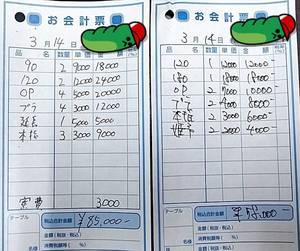 お会計票
3月14日
品名 数量 単価 金額
90 2 9000 18000
120 2 12000 24000
OP 4 5000 20000
プラ 4 3000 12000
延長 1 5000 5000
本指 3 3000 9000
実費 3000
テーブル
税込合計金額 ¥85,000-
金額(税抜・税込)
消費税額等(%)
お会計票
3月14日
品名 数量 単価 金額
120 1 12000 12000-
180 1 18000 18000-
OP 2 5000 10000-
プラ 2 4000 8000-
本指 2 3000 6000-
2 2000 4000-
テーブル
税込合計金額
金額(税抜・税込)
消費税額等(%)